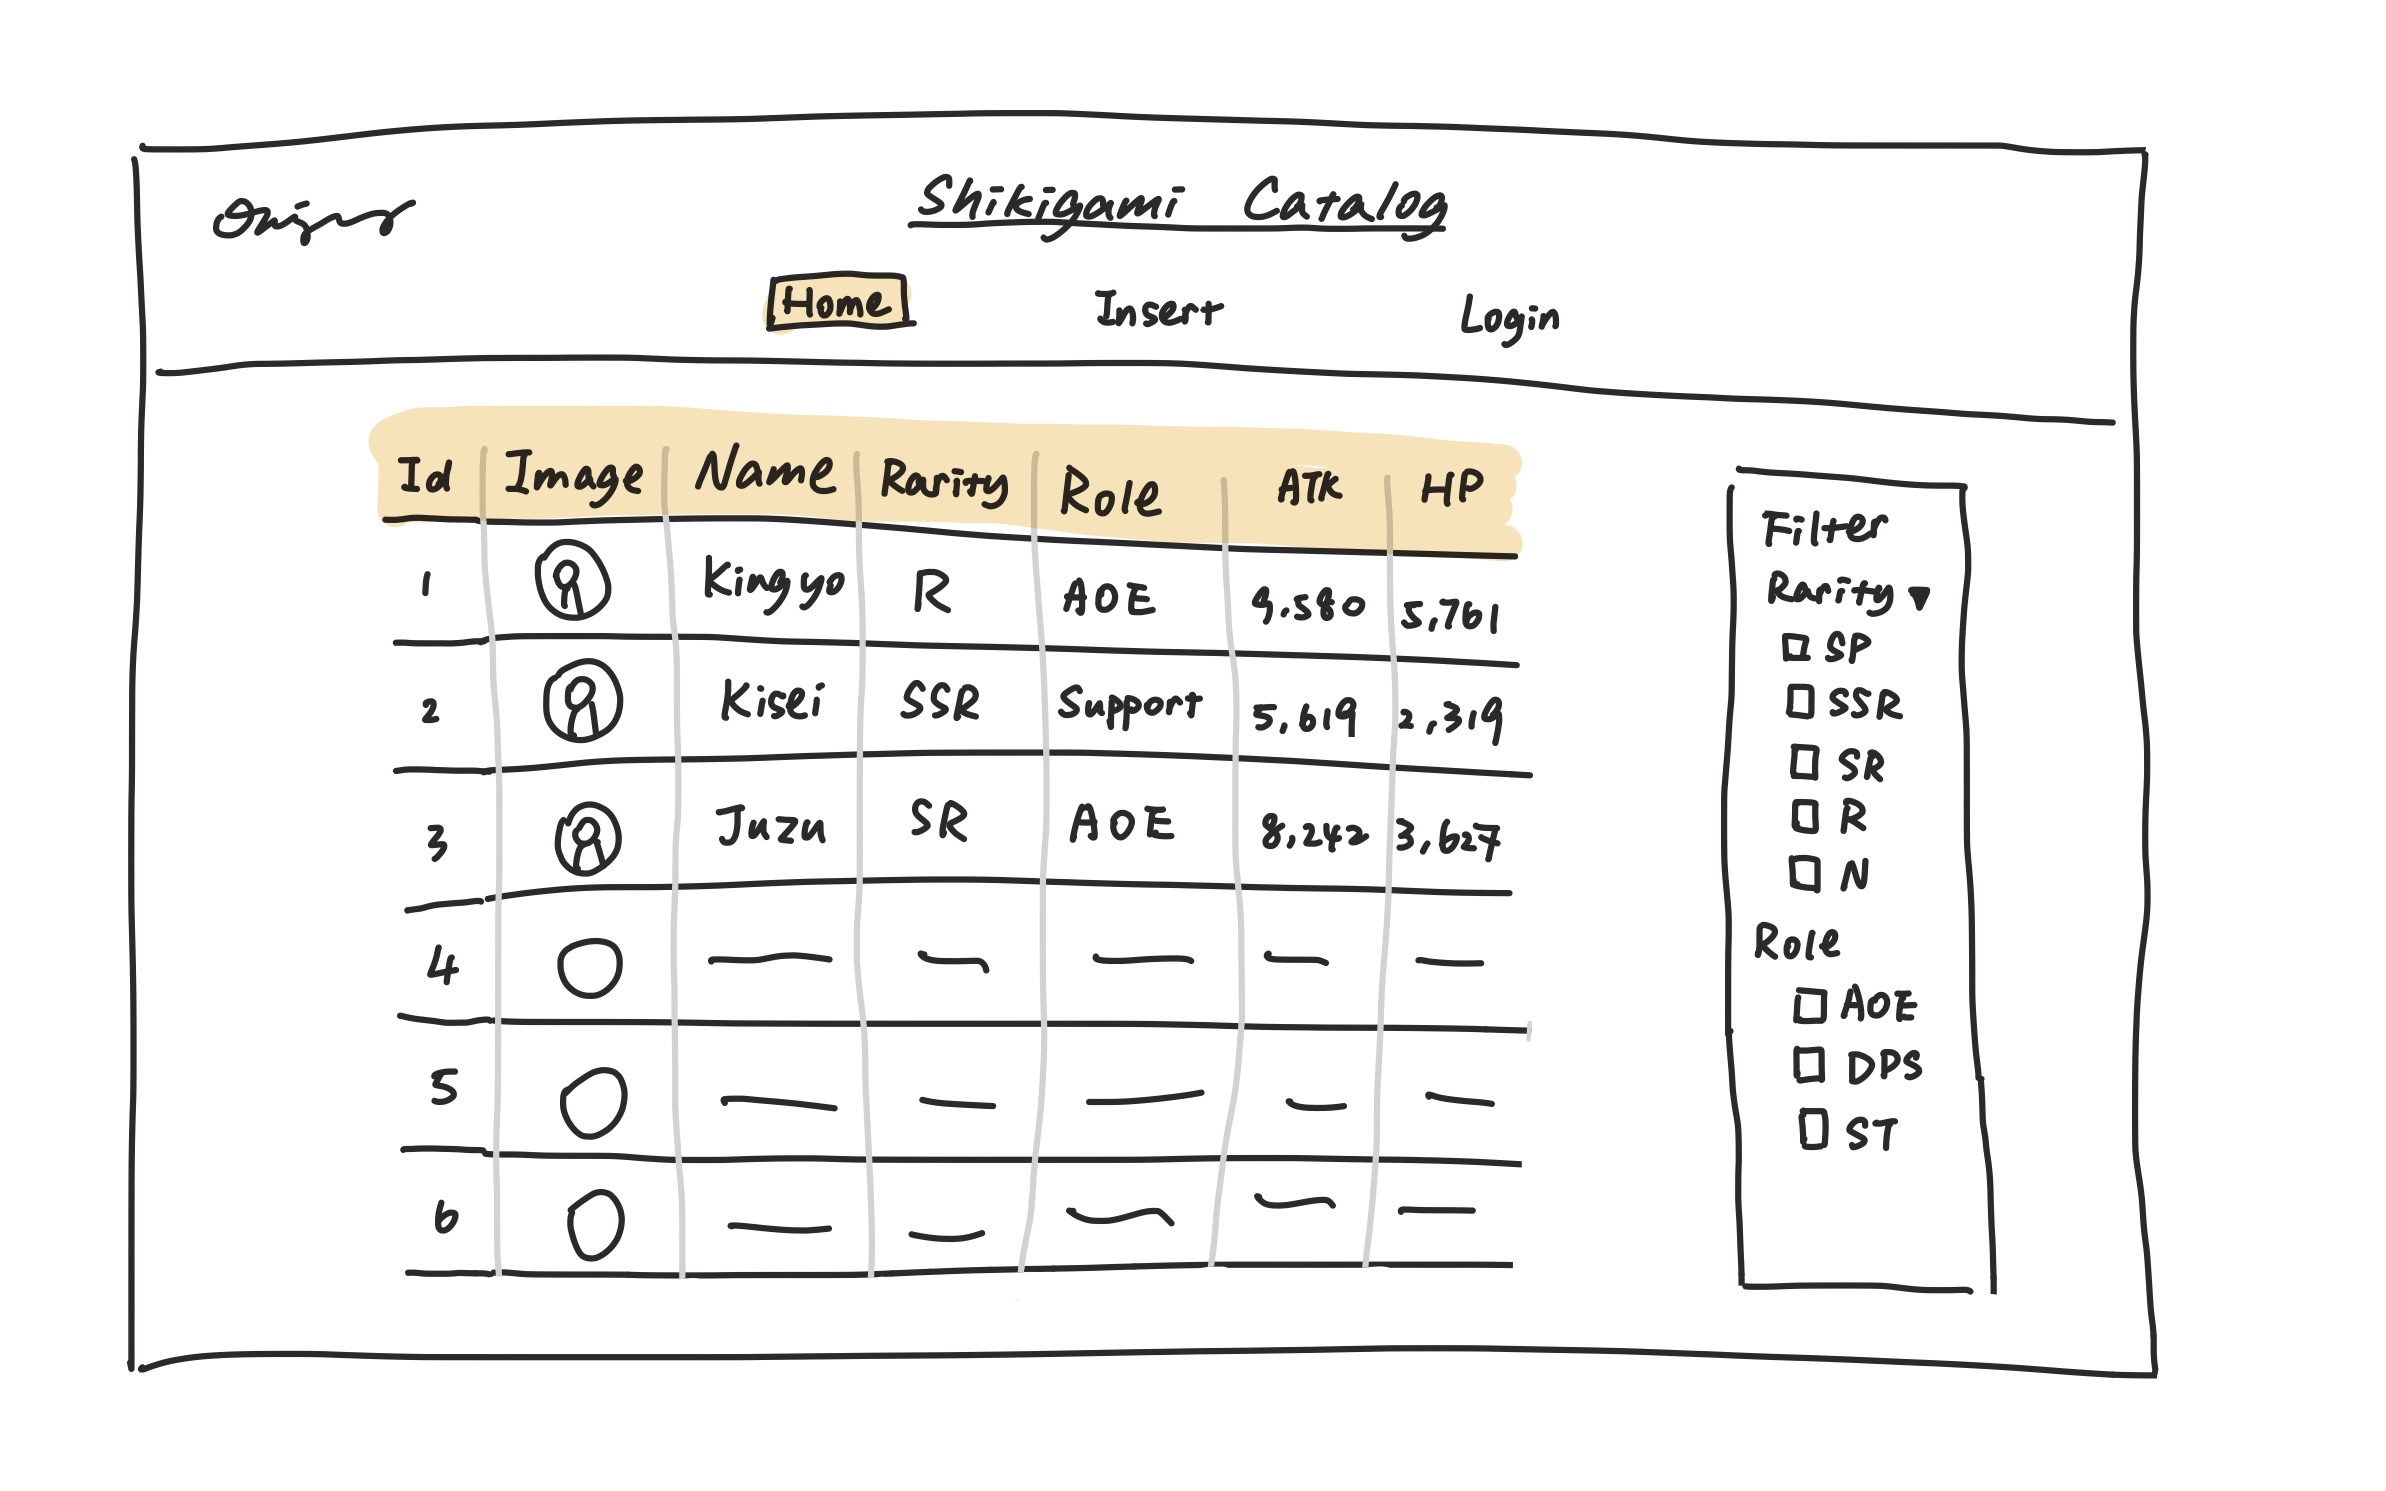 Shikigami Catalog
Home Insert Login
Id Image Name Rarity Role ATK HP
1 Kingyo R AOE 9,580 5,761
2 Kisei SSR Support 5,619 2,319
3 Juzu SR AOE 8,242 3,627
4
5
6
Filter
Rarity ▼
SP
SSR
SR
R
N
Role
AOE
DPS
ST